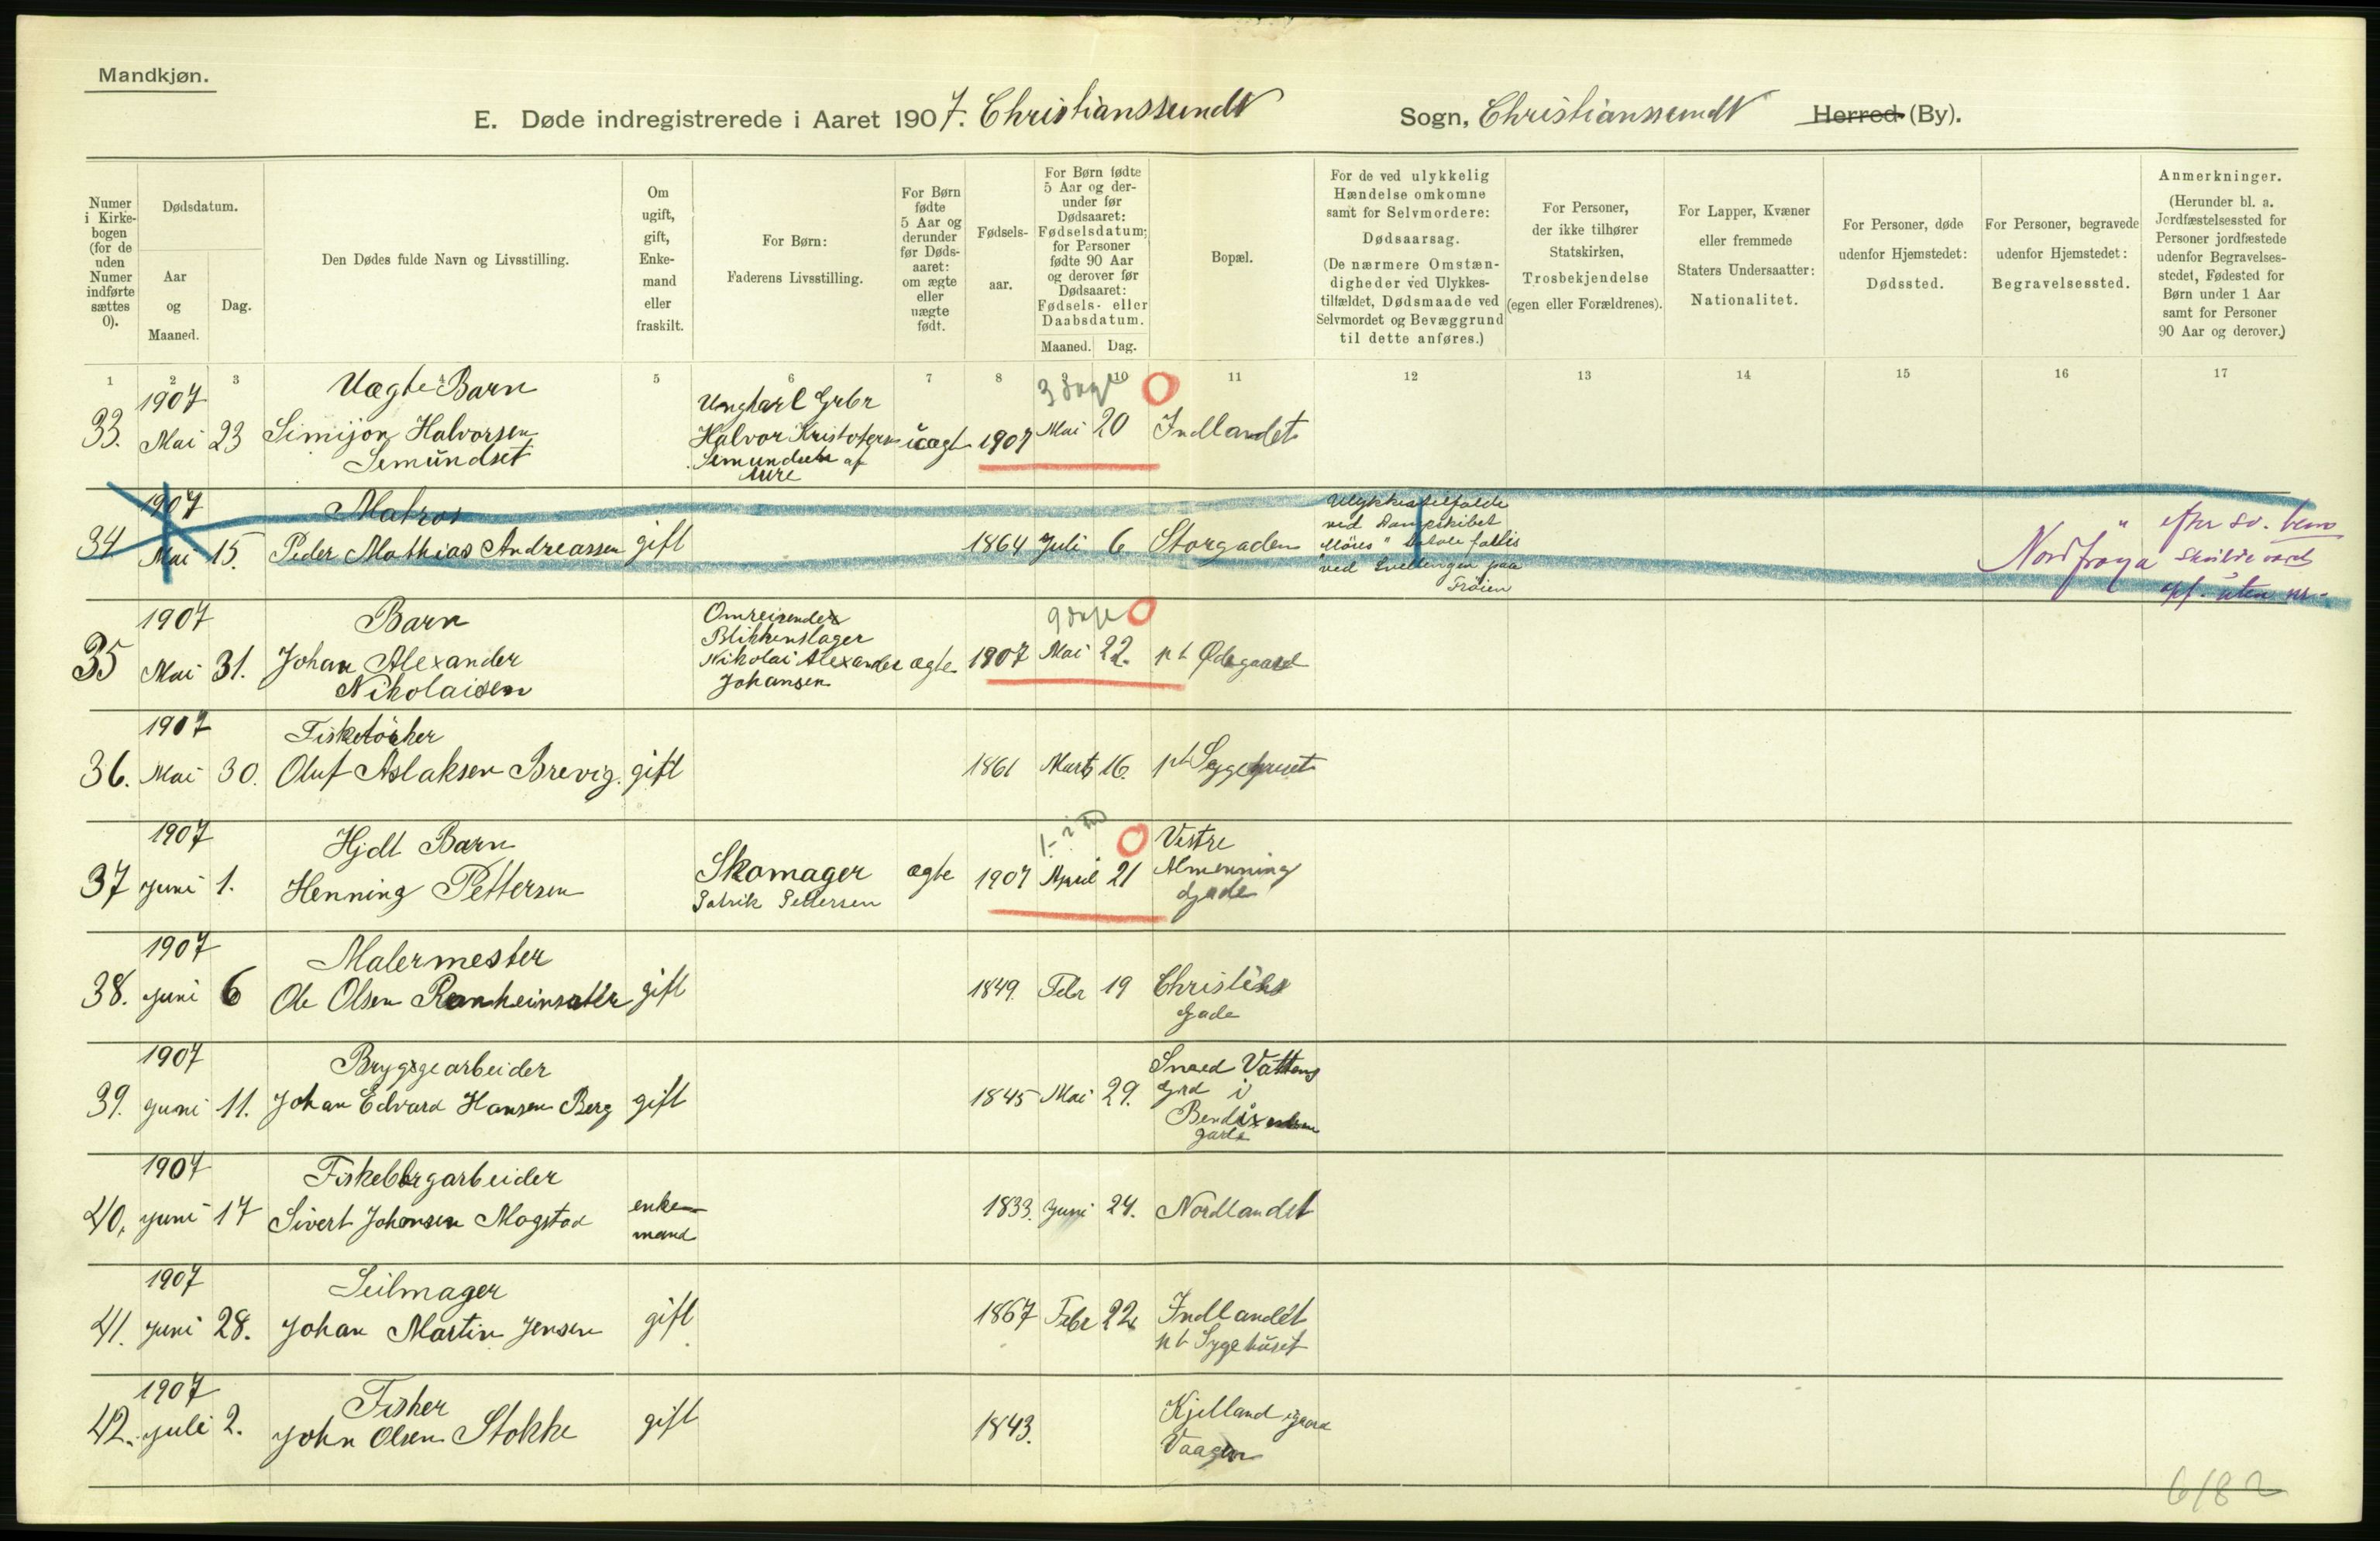 Mandkjøn.
E. Døde indregistrerede i Aaret 1907. Christianssund Sogn, Christianssund Herred (By).
Numer i Kirkebogen (for de uden Numer indførte sættes 0).
Dødsdatum.
Aar og Maaned.
Dag.
Den Dødes fulde Navn og Livsstilling.
Om ugift, gift, Enkemand eller fraskilt.
For Børn:
Faderens Livsstilling.
For Børn fødte 5 Aar og derunder før Dødsaaret: om ægte eller uægte født.
Fødselsaar.
For Børn fødte 5 Aar og derunder før Dødsaaret: Fødselsdatum; for Personer fødte 90 Aar og derover før Dødsaaret: Fødsels- eller Daabsdatum.
Maaned. Dag.
Bopæl.
For de ved ulykkelig Hændelse omkomne samt for Selvmordere: Dødsaarsag.
(De nærmere Omstændigheder ved Ulykkestilfældet, Dødsmaade ved Selvmordet og Bevæggrund til dette anføres.)
For Personer, der ikke tilhører Statskirken, Trosbekjendelse (egen eller Forældrenes).
For Lapper, Kvæner eller fremmede Staters Undersaatter: Nationalitet.
For Personer, døde udenfor Hjemstedet: Dødssted.
For Personer, begravede udenfor Hjemstedet: Begravelsessted.
Anmerkninger.
(Herunder bl. a. Jordfæstelsessted for Personer jordfæstede udenfor Begravelsesstedet, Fødested for Børn under 1 Aar samt for Personer 90 Aar og derover.)
1 2 3 4 5 6 7 8 9 10 11 12 13 14 15 16 17
1907 Uægte Barn Ungkarl Grbr 3 dage
33. Mai 23 Simijon Halvorsen Halvor Kristofersen uægte 1907 Mai 20 Indlandet
Semundset Semundseth af
Aure
1907 Matros Ulykkestilfælde
ved Dampskibet
34 Mai 15. Peder Mathias Andreassen gift 1864 Juli 6 Storgaden "Möres" totale forlis
ved Svellingen paa
Fröien
Nordfrøya
efter
skulde vært
uten nr.
1907 Barn Omreisende 9 dage
Blikkenslager
35 Mai 31. Johan Alexander Nikolai Alexander ægte 1907 Mai 22. pt Ødegaard
Nikolaisen Johansen
1907 Fisketörker
36. Mai 30. Oluf Aslaksen Brevig. gift 1861 Marts 16. pt Sygehuset
1907 Hjdt Barn Vestre
37 Juni 1. Henning Pettersen Skomager ægte 1907 April 21 Almenning
Patrik Pettersen Gade
1907 Malermester
38. Juni 6 Ole Olsen Ranheimsæter gift 1849. Febr 19 Christies
Gade
1907 Bryggearbeider Sneed Vattens
39. Juni 11. Johan Edvard Hansen Berg gift 1845 Mai 29. Grd i
Bendixens
gade
1907 Fiskebergarbeider
40. Juni 17 Sivert Johansen Mogstad enkemand 1833. Juni 24. Nordlandet
1907 Seilmager
41. Juni 28. Johan Martin Jensen gift 1867 Febr 22 Indlandet
pt Sygehuset
1907 Fisker
42. Juli 2. John Olsen Stokke gift 1843. Kjelland igaard
Vaagen
6/82